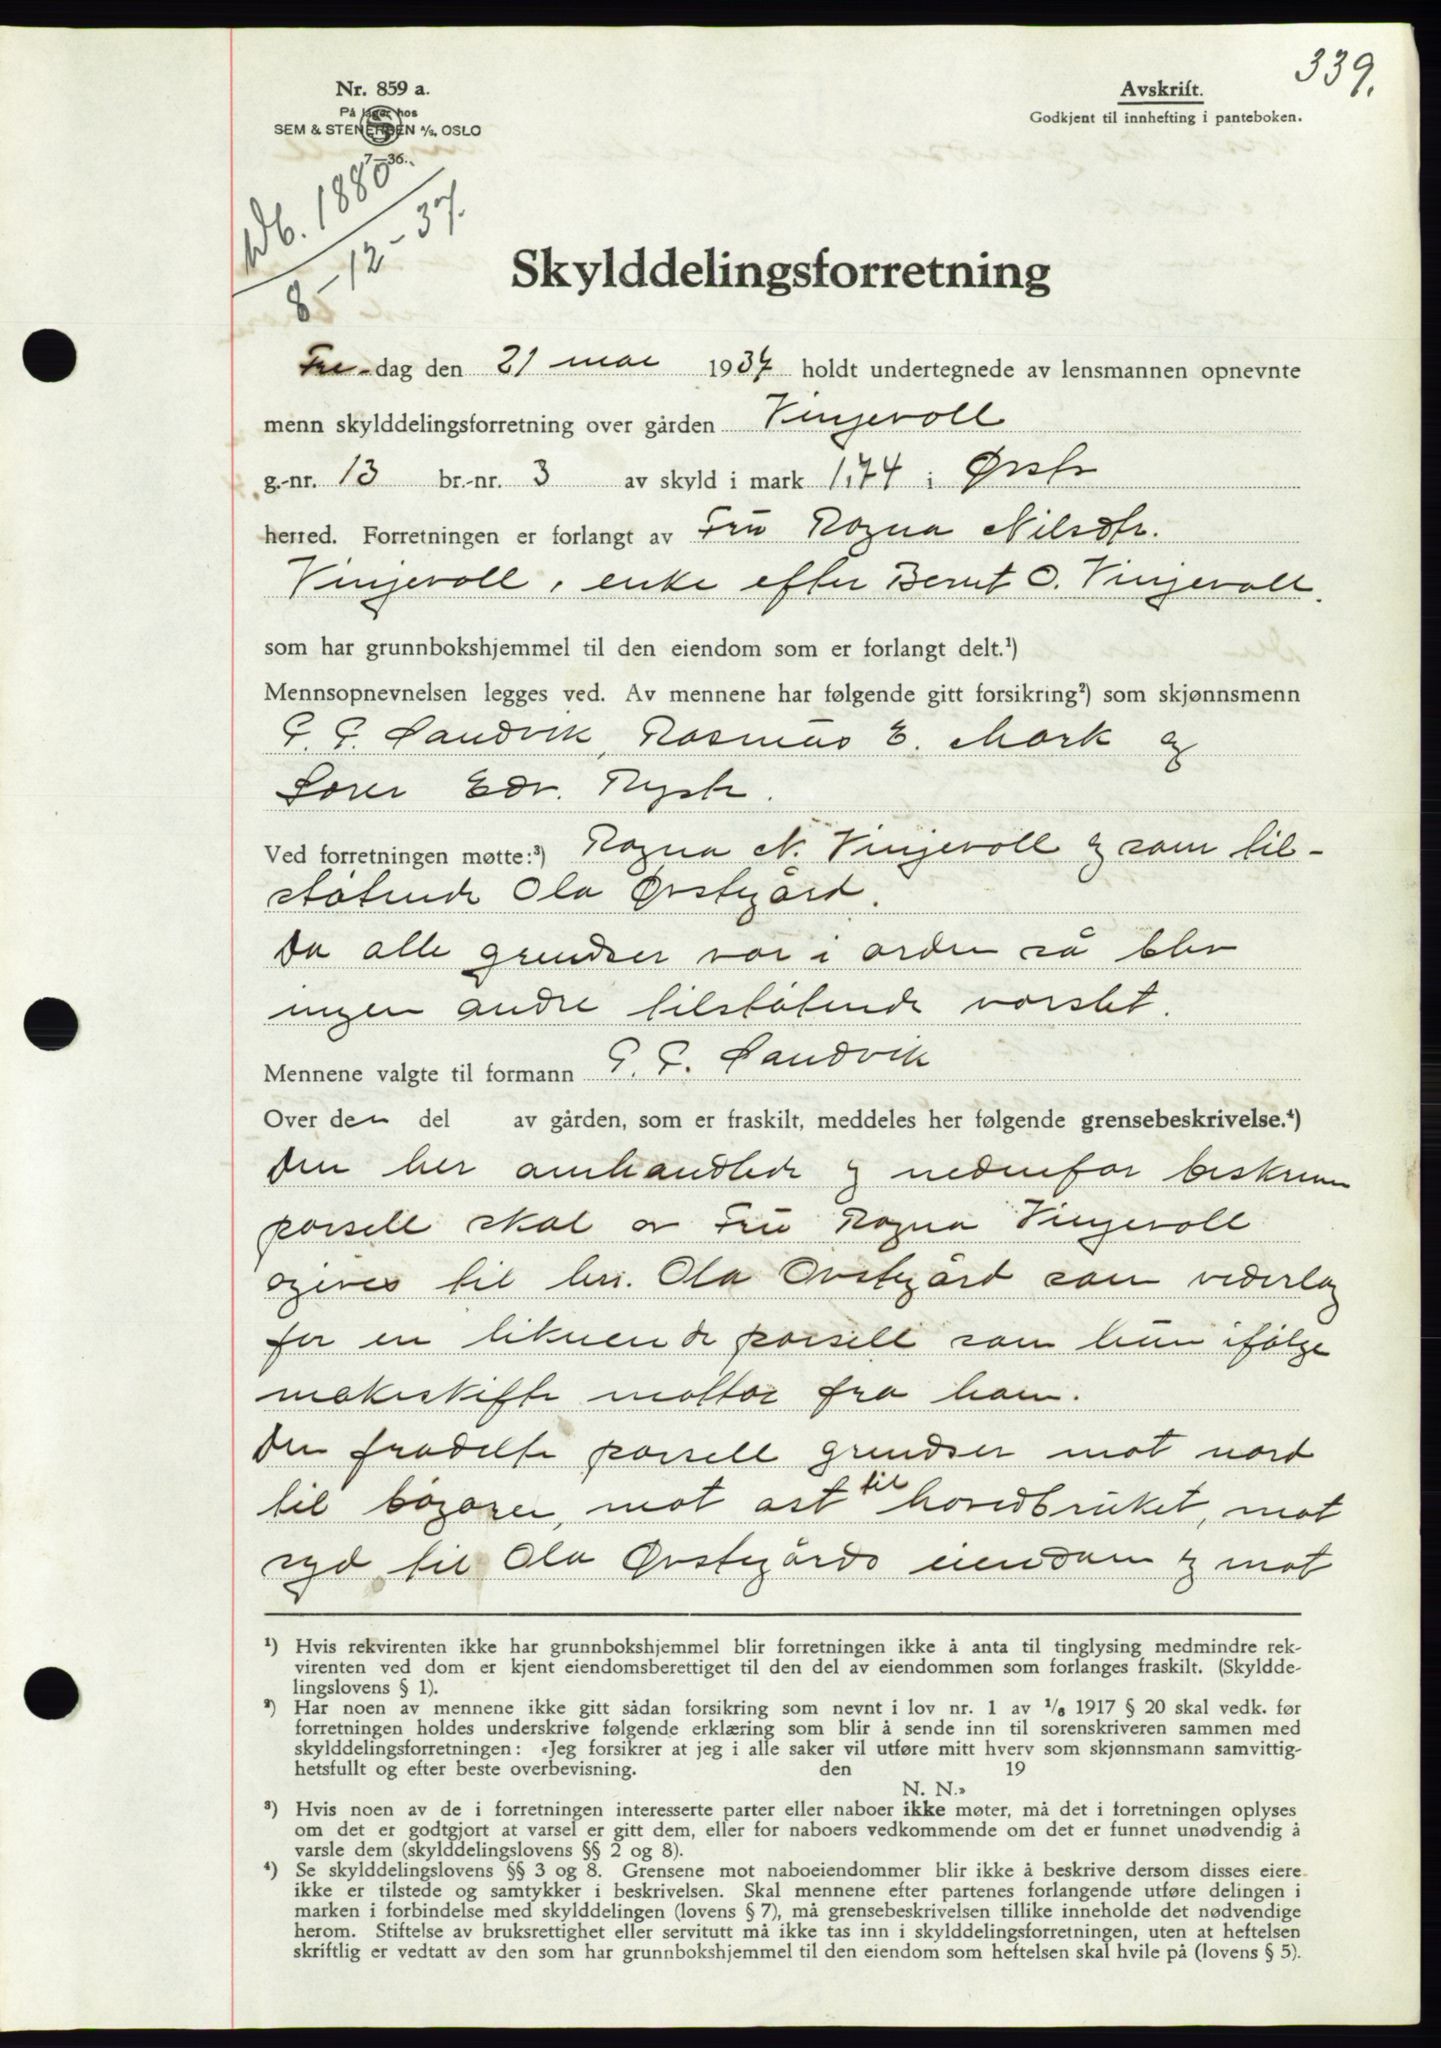 339.
Nr. 859 a.
På lager hos
SEM & STENERSEN A/S, OSLO
7—36.
Avskrift.
Godkjent til innhefting i panteboken.
Db. 1880.
8-12-37.
Skylddelingsforretning
Fre-dag den 21 mai 1937 holdt undertegnede av lensmannen opnevnte
menn skylddelingsforretning over gården Vinjevoll
g.-nr. 13 br.-nr. 3 av skyld i mark 1,74 i Ørsta
herred. Forretningen er forlangt av Fru Ragna Nilsdtr.
Vinjevoll, enke efter Bernt O. Vinjevoll.
som har grunnbokshjemmel til den eiendom som er forlangt delt.¹)
Mennsopnevnelsen legges ved. Av mennene har følgende gitt forsikring²) som skjønnsmenn
Sandvik, Rasmus E. Mork og
Edv. Rysta.
Ved forretningen møtte:³) Ragna N. Vinjevoll og som til-
støtende Ola Øvstegård.
Da alle grendser var i orden så blev
ingen andre tilstøtende varslet.
Mennene valgte til formann Sandvik
Over den del av gården, som er fraskilt, meddeles her følgende grensebeskrivelse.⁴)
Den her omhandlede og nedenfor beskrevne
parsell skal av Fru Ragna Vinjevoll
til hr. Ola Øvstegård som vederlag
for en liknende parsell som hun ifølge
makeskifte mottar fra ham.
Den fradelte parsell grendser mot nord
til bøgarer, mot øst til hovedbruket, mot
syd til Ola Øvstegårds eiendom og mot
¹) Hvis rekvirenten ikke har grunnbokshjemmel blir forretningen ikke å anta til tinglysing medmindre rek-
virenten ved dom er kjent eiendomsberettiget til den del av eiendommen som forlanges fraskilt. (Skyldde-
lingslovens § 1).
²) Har noen av mennene ikke gitt sådan forsikring som nevnt i lov nr. 1 av 1/6 1917 § 20 skal vedk. før
forretningen holdes underskrive følgende erklæring som blir å sende inn til sorenskriveren sammen med
skylddelingsforretningen: «Jeg forsikrer at jeg i alle saker vil utføre mitt hverv som skjønnsmann samvittig-
hetsfullt og efter beste overbevisning. den 19
N. N.»
³) Hvis noen av de i forretningen interesserte parter eller naboer ikke møter, må det i forretningen oplyses
om det er godtgjort at varsel er gitt dem, eller for naboers vedkommende om det er funnet unødvendig å
varsle dem (skylddelingslovens §§ 2 og 8).
⁴) Se skylddelingslovens §§ 3 og 8. Grensene mot naboeiendommer blir ikke å beskrive dersom disses eiere
ikke er tilstede og samtykker i beskrivelsen. Skal mennene efter partenes forlangende utføre delingen i
marken i forbindelse med skylddelingen (lovens § 7), må grensebeskrivelsen tillike inneholde det nødvendige
herom. Stiftelse av bruksrettighet eller servitutt må ikke tas inn i skylddelingsforretningen, uten at heftelsen
skriftlig er vedtatt av den som har grunnbokshjemmel til den eiendom som heftelsen skal hvile på (lovens § 5).